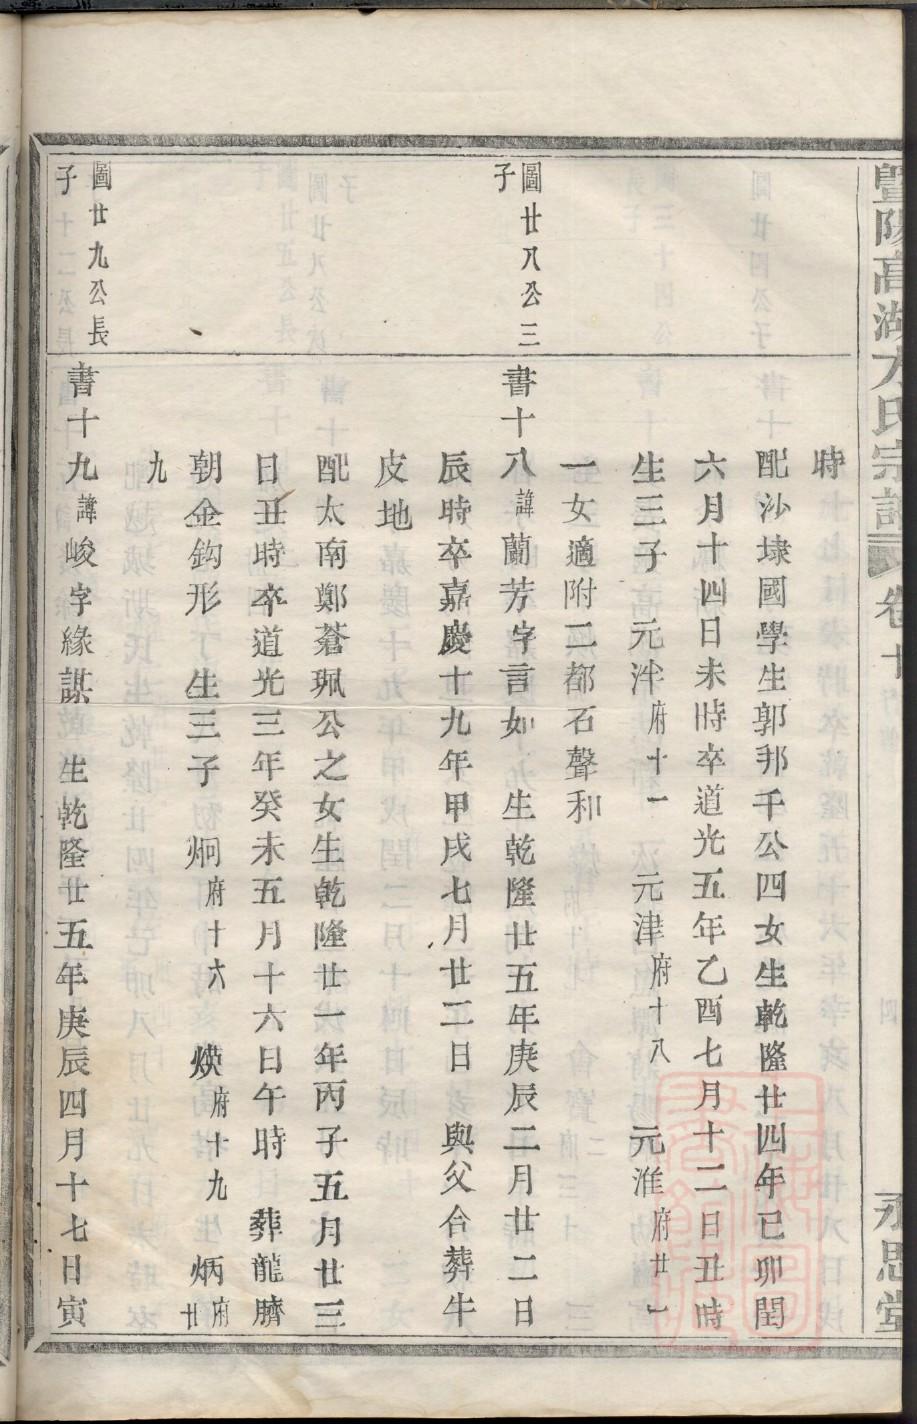 暨陽高湖方氏宗譜 卷十 永思堂
時
配沙埭國學生郭邦千公四女生乾隆廿四年己卯閏
六月十四日未時卒道光五年乙酉七月十二日丑時
生三子元泮府十一元津府十八元淮府廿一
一女適附二都石聲和
圖廿八公三子
書十八諱蘭芳字言如 生乾隆廿五年庚辰二月廿二日
辰時卒嘉慶十九年甲戌七月廿二日 與父合葬牛
皮地
配太南鄭蒼珮公之女生乾隆廿一年丙子五月廿三
日丑時卒道光三年癸未五月十六日午時 葬龍臍
朝金鈎形 生三子炯府十六 煐府十九 炳府廿
九
圖廿九公長子
書十九諱峻字緣謀 生乾隆廿五年庚辰四月十七日寅